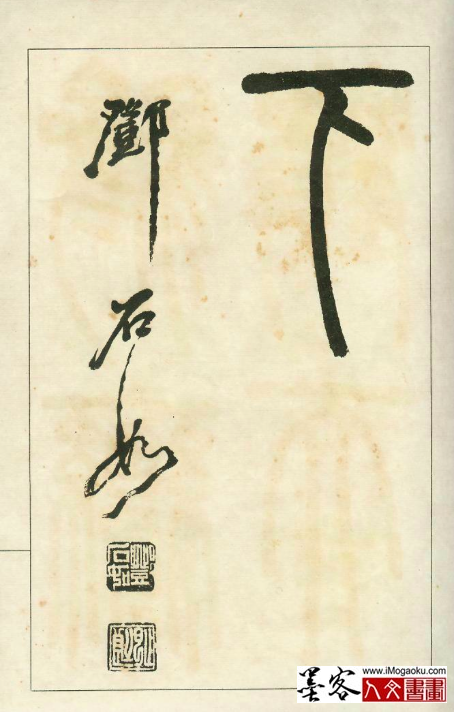 下
鄧石如
鄧石如
墨客
www.iMogaoku.com
人文書畫